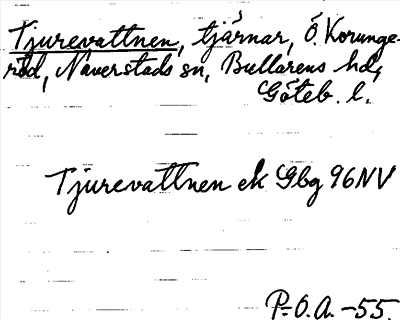 Tjurevattnen, tjärnar, Ö. Korunge-
röd, Naverstads sn, Bullarens hd,
Göteb. l.
Tjurevattnen ek Gbg 96NV
P.-O.A. -55.